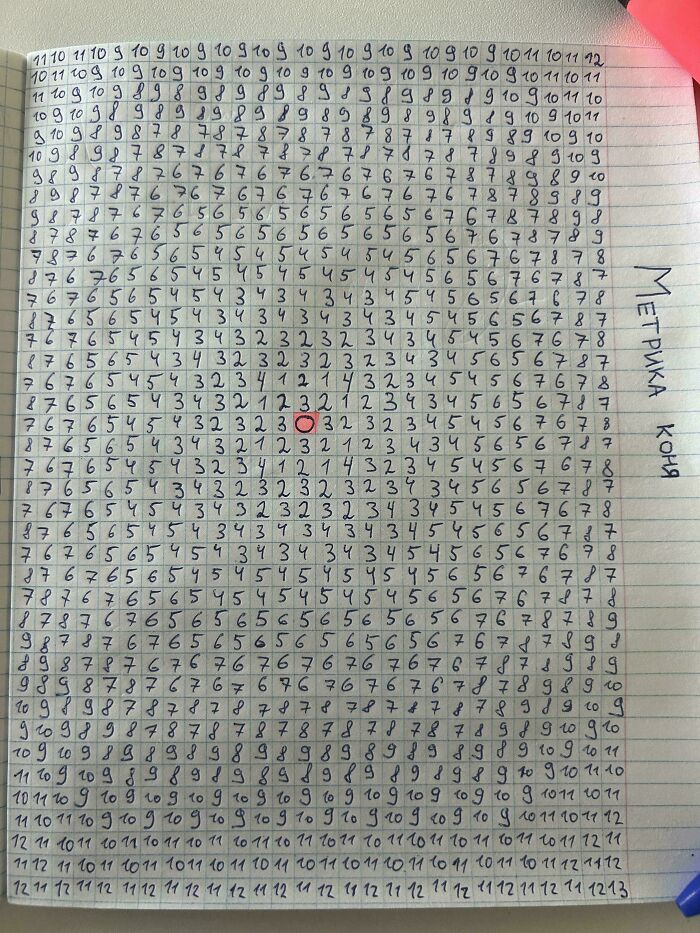 11 10 11 10 9 10 9 10 9 10 9 10 9 10 9 10 9 10 9 10 9 10 9 10 11 10 11 12
10 11 10 9 10 9 10 9 10 9 10 9 10 9 10 9 10 9 10 9 10 9 10 9 10 11 10 11
11 10 9 10 9 8 9 8 9 8 9 8 9 8 9 8 9 8 9 8 9 8 9 10 9 10 11 10
10 9 10 9 8 9 8 9 8 9 8 9 8 9 8 9 8 9 8 9 8 9 8 9 10 9 10 11
9 10 9 8 9 8 7 8 7 8 7 8 7 8 7 8 7 8 7 8 7 8 9 8 9 10 9 10
10 9 8 9 8 7 8 7 8 7 8 7 8 7 8 7 8 7 8 7 8 7 8 9 8 9 10 9
9 8 9 8 7 8 7 6 7 6 7 6 7 6 7 6 7 6 7 6 7 8 7 8 9 8 9 10
8 9 8 7 8 7 6 7 6 7 6 7 6 7 6 7 6 7 6 7 6 7 8 7 8 9 8 9
9 8 7 8 7 6 7 6 5 6 5 6 5 6 5 6 5 6 5 6 7 6 7 8 7 8 9 8
8 7 8 7 6 7 6 5 6 5 6 5 6 5 6 5 6 5 6 5 6 7 6 7 8 7 8 9
7 8 7 6 7 6 5 6 5 4 5 4 5 4 5 4 5 4 5 6 5 6 7 6 7 8 7 8
8 7 6 7 6 5 6 5 4 5 4 5 4 5 4 5 4 5 4 5 6 5 6 7 6 7 8 7
7 6 7 6 5 6 5 4 5 4 3 4 3 4 3 4 3 4 5 4 5 6 5 6 7 6 7 8
8 7 6 5 6 5 4 5 4 3 4 3 4 3 4 3 4 3 4 5 4 5 6 5 6 7 8 7
7 6 7 6 5 4 5 4 3 4 3 2 3 2 3 2 3 4 3 4 5 4 5 6 7 6 7 8
8 7 6 5 6 5 4 3 4 3 2 3 2 3 2 3 2 3 4 3 4 5 6 5 6 7 8 7
7 6 7 6 5 4 5 4 3 2 3 4 1 2 1 4 3 2 3 4 5 4 5 6 7 6 7 8
8 7 6 5 6 5 4 3 4 3 2 1 2 3 2 1 2 3 4 3 4 5 6 5 6 7 8 7
7 6 7 6 5 4 5 4 3 2 3 2 3 0 3 2 3 2 3 4 5 4 5 6 7 6 7 8
8 7 6 5 6 5 4 3 4 3 2 1 2 3 2 1 2 3 4 3 4 5 6 5 6 7 8 7
7 6 7 6 5 4 5 4 3 2 3 4 1 2 1 4 3 2 3 4 5 4 5 6 7 6 7 8
8 7 6 5 6 5 4 3 4 3 2 3 2 3 2 3 2 3 4 3 4 5 6 5 6 7 8 7
7 6 7 6 5 4 5 4 3 4 3 2 3 2 3 2 3 4 3 4 5 4 5 6 7 6 7 8
8 7 6 5 6 5 4 5 4 3 4 3 4 3 4 3 4 3 4 5 4 5 6 5 6 7 8 7
7 6 7 6 5 6 5 4 5 4 3 4 3 4 3 4 3 4 5 4 5 6 5 6 7 6 7 8
8 7 6 7 6 5 6 5 4 5 4 5 4 5 4 5 4 5 4 5 6 5 6 7 6 7 8 7
7 8 7 6 7 6 5 6 5 4 5 4 5 4 5 4 5 4 5 6 5 6 7 6 7 8 7 8
8 7 8 7 6 7 6 5 6 5 6 5 6 5 6 5 6 5 6 5 6 7 6 7 8 7 8 9
9 8 7 8 7 6 7 6 5 6 5 6 5 6 5 6 5 6 5 6 7 6 7 8 7 8 9 8
8 9 8 7 8 7 6 7 6 7 6 7 6 7 6 7 6 7 6 7 6 7 8 7 8 9 8 9
9 8 9 8 7 8 7 6 7 6 7 6 7 6 7 6 7 6 7 6 7 8 7 8 9 8 9 10
10 9 8 9 8 7 8 7 8 7 8 7 8 7 8 7 8 7 8 7 8 7 8 9 8 9 10 9
9 10 9 8 9 8 7 8 7 8 7 8 7 8 7 8 7 8 7 8 7 8 9 8 9 10 9 10
10 9 10 9 8 9 8 9 8 9 8 9 8 9 8 9 8 9 8 9 8 9 8 9 10 9 10 11
11 10 9 10 9 8 9 8 9 8 9 8 9 8 9 8 9 8 9 8 9 8 9 10 9 10 11 10
10 11 10 9 10 9 10 9 10 9 10 9 10 9 10 9 10 9 10 9 10 9 10 9 10 11 10 11
11 10 11 10 9 10 9 10 9 10 9 10 9 10 9 10 9 10 9 10 9 10 9 10 11 10 11 12
12 11 10 11 10 11 10 11 10 11 10 11 10 11 10 11 10 11 10 11 10 11 10 11 10 11 12 11
11 12 11 10 11 10 11 10 11 10 11 10 11 10 11 10 11 10 11 10 11 10 11 10 11 12 11 12
12 11 12 11 12 11 12 11 12 11 12 11 12 11 12 11 12 11 12 11 12 11 12 11 12 11 12 13
МЕТРИКА КОНЯ